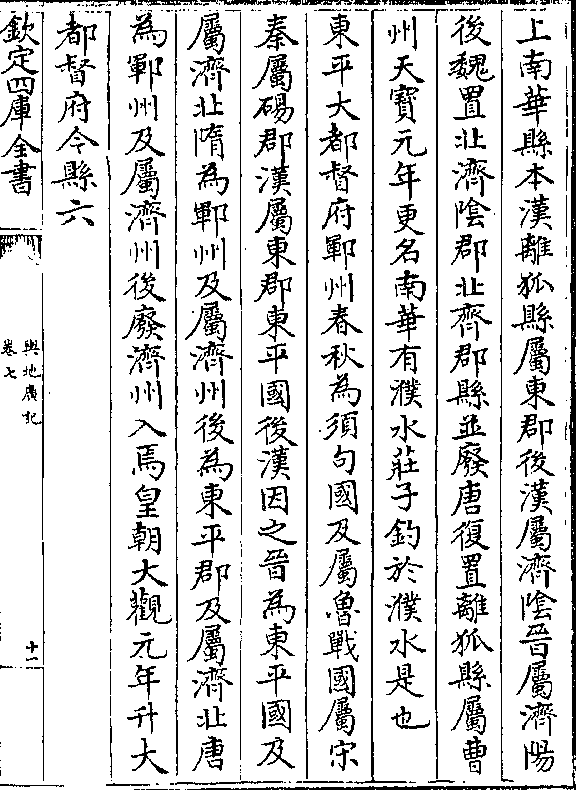 上南華縣本漢離狐縣屬東郡後漢屬濟陰晉屬濟陽
後魏置北濟陰郡北齊郡縣並廢唐復置離狐縣屬曹
州天寶元年更名南華有濮水莊子釣於濮水是也
東平大都督府鄆州春秋為須句國及屬魯戰國屬宋
秦屬碭郡漢屬東郡東平國後漢因之晉為東平國及
屬濟北隋為鄆州及屬濟州後為東平郡及屬濟北唐
為鄆州及屬濟州後廢濟州入焉皇朝大觀元年升大
都督府今縣六
欽定四庫全書
輿地廣記
卷七
十一